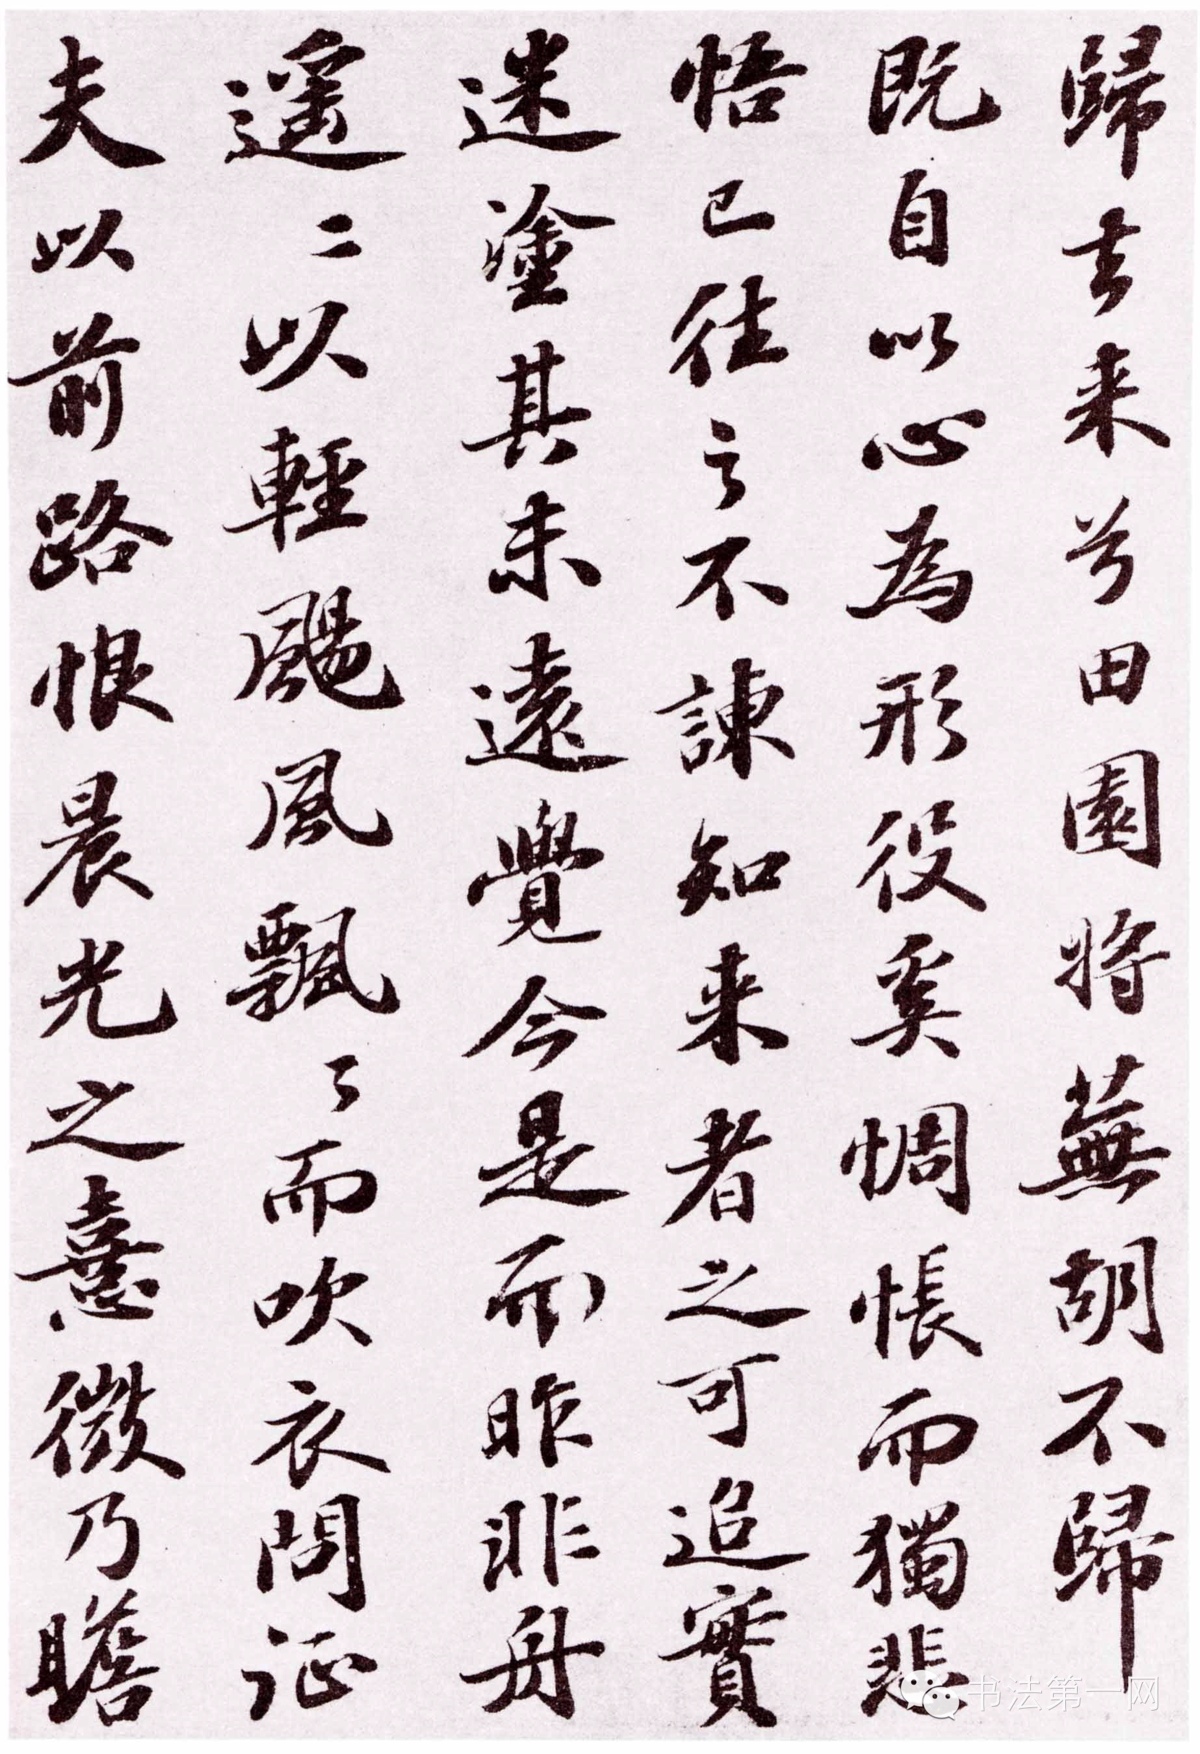 歸去来兮田園将蕪胡不歸
既自以心為形役奚惆悵而獨悲
悟已往之不諫知来者之可追實
迷塗其未遠覺今是而昨非舟
遥〻以輕颺風飄〻而吹衣問征
夫以前路恨晨光之熹微乃瞻
书法第一网